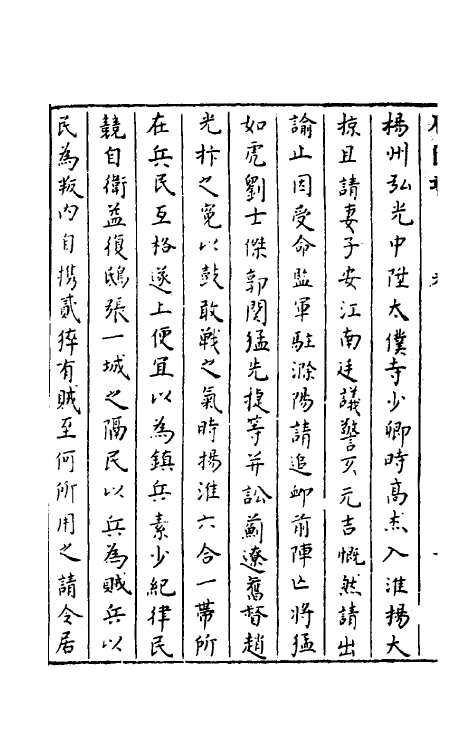 揚州弘光中陞太僕寺少卿時高杰入淮揚大
掠且請妻子安江南廷議警亥元吉慨然請出
諭止因受命監軍駐滁陽請追䘏前陣亡將猛
如虎劉士傑郭関猛先捷等并訟薊遼舊督趙
光抃之寃以鼓敢戰之氣時揚淮六合一帶所
在兵民互格遂上便宜以為鎮兵素少紀律民
競自衛益復鴟張一城之隔民以兵為賊兵以
民為叛内自携貳猝有賊至何所用之請令居